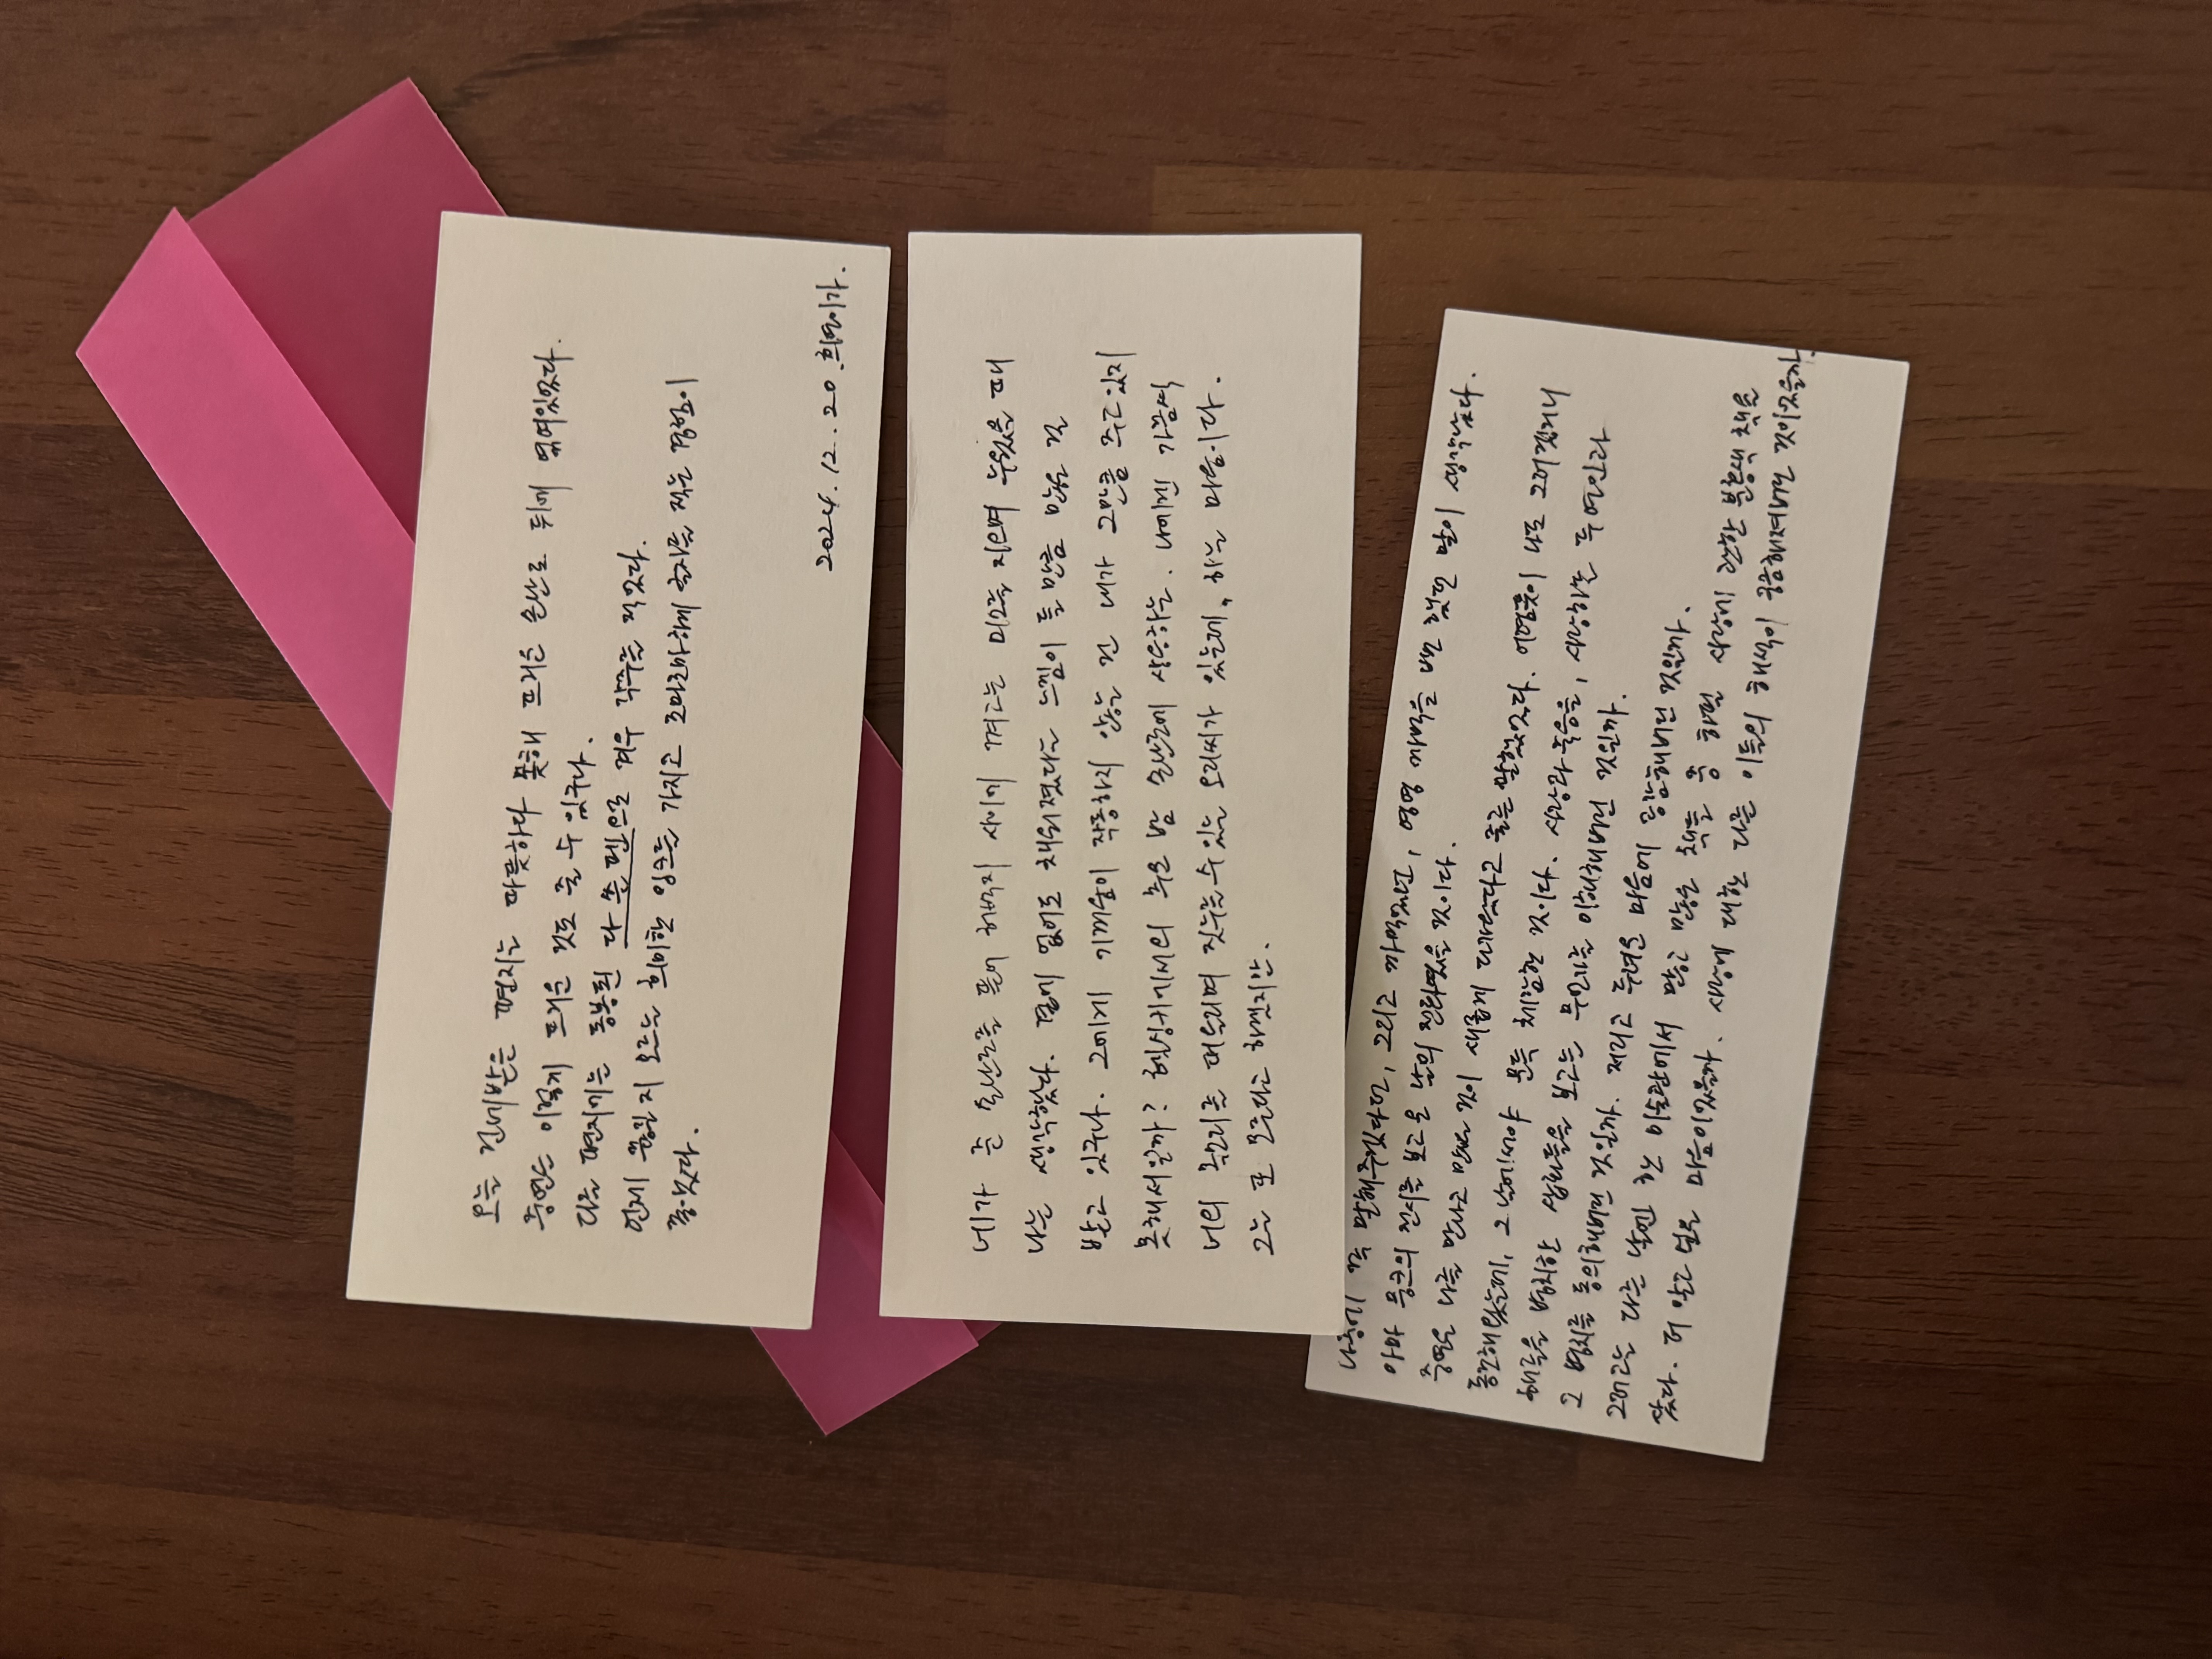 오늘 건네받은 편지는 따뜻하다 못해 뜨거운 손난로 뒤에 엮여있었다.
중연는 이렇게 뜨거운 것도 줄 수 있구나.
다른 편지에는 동봉된 다 쓴 펜으로 겨우 각주를 적었다.
언제 끊길지 모르는 희미한 잉크를 가지고 조마조마하게 글자를 적는 경험이
좋았다.
2024. 12. 20. 희연이가.
네가 준 손난로를 뜯어 허벅지 사이에 껴고는 미소를 지으며 누웠을 때
나는 생각했다. 곁에 없어도 채워졌다는 느낌이 들 만큼 많은 걸
받고 있구나. 그에게 기꺼움이 작동하지 않는 건 내가 그만큼 주고있지
못해서일까? 헬싱키에서의 추운 밤 손난로에 상응하는. 나에겐 가끔씩
너의 목소리를 떠올리며 짓누를 수 있는 오리씨가 있는데, 하는 마음이다.
그는 또 모른다고 하겠지만.
나중에 꼭 말해주겠다던, 그리고 까먹었던, 영영 까먹을 뻔 했던 말이 생각났다.
아마 뭉크의 전시를 보고 온 날의 전화였을 것이다.
중연은 나를 만나고 많은 것이 새롭게 다가왔다고 줄곧 말했었다. 어렴풋이 나도 그러겠거니
동조해왔는데, 그 날에서야 문득 체감한 것이다. 사랑과 죽음을, 사랑하는 두 연인과
해골을 병치한 삽화들을 보고는 무언가를 이해해버린 것일까.
그 병치를 동의해버린 것일까. 저리고 두려운 마음에 공감해버린 것일까.
그러고는 다른 날엔 한 미술관에서 많고 많은 책들 중 하필 사랑에 관한 분홍색 책을
샀다. 더 알고 싶은 마음이었을까. 사랑에 대한 다른 이들의 해석이 궁금해져버린 것이었을까.